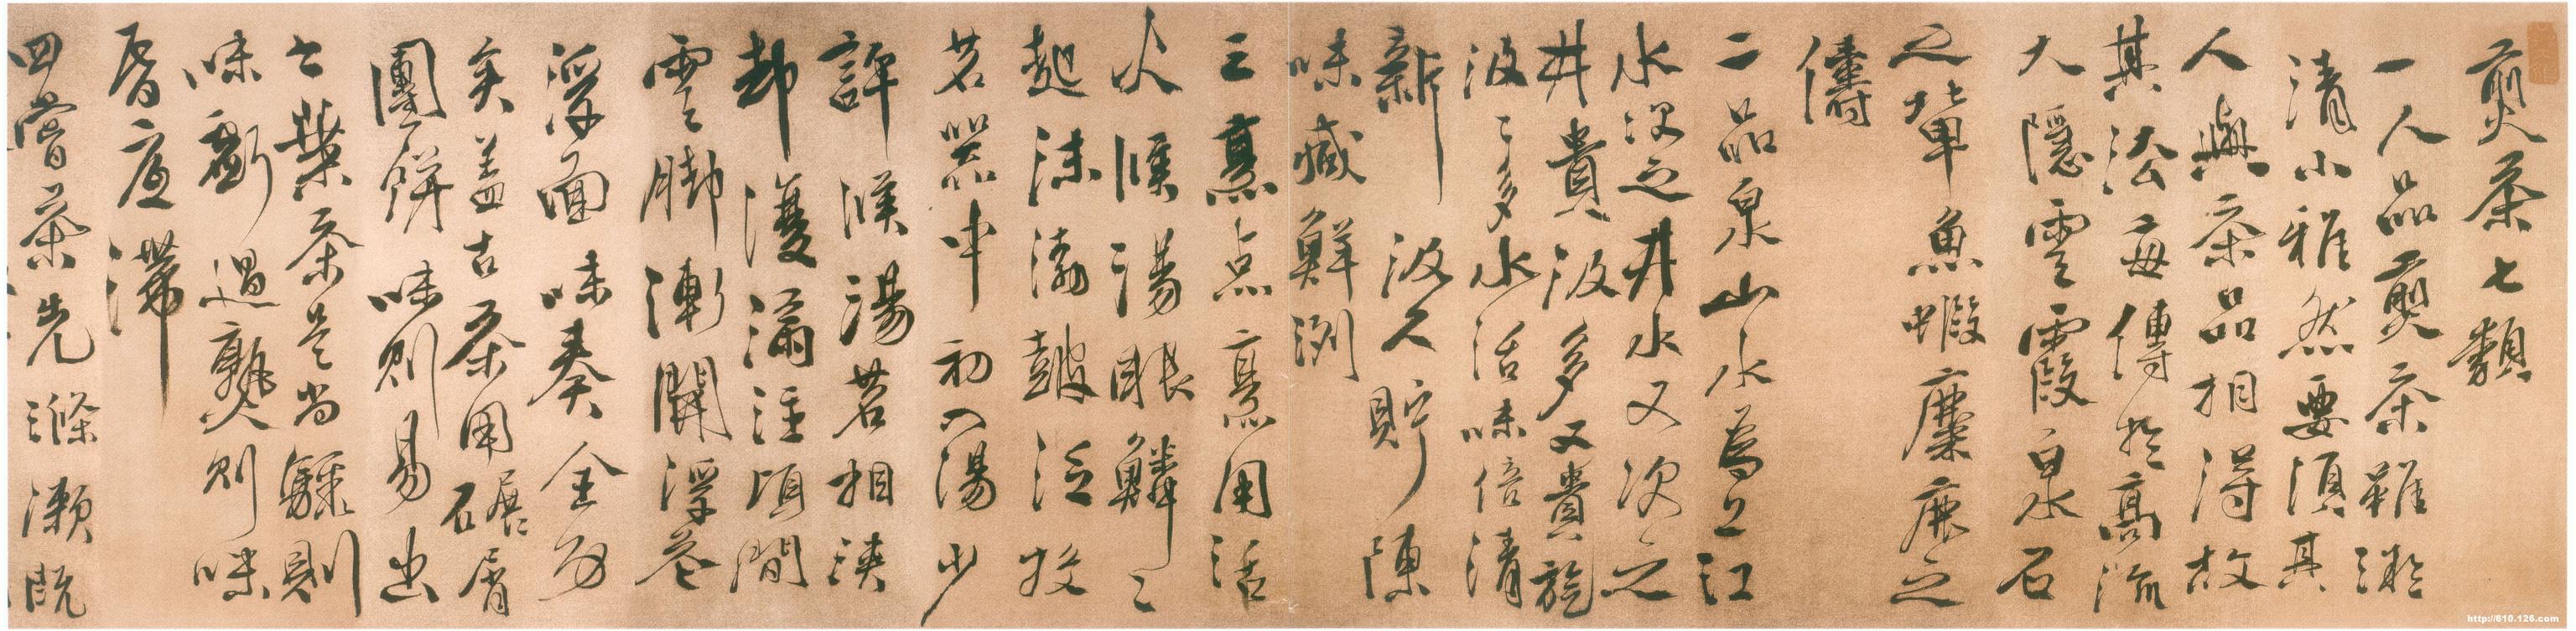 煎茶七類
一人品煎茶雖微
清小雅然要須其
人與茶品相得故
其法每傳於高流
大隱雲霞泉石
之輩魚蝦麋鹿之
儔
二品泉山水為上江
水次之井水又次之
井貴汲多又貴旋
汲汲多水活味倍清
新汲久貯陳
味減鮮冽
三烹点烹用活
火候湯眼鱗鱗
起沫渤鼓泛投
茗器中初入湯少
許候湯茗相浹
却復滿注頃間
雲脚漸開浮花
浮面味奏全功
矣盖古茶用碾屑
團餅味則易出
七葉茶是尚驟則
味虧過熟則味
昏底滯
四嘗茶先滌漱既
http://610.126.com